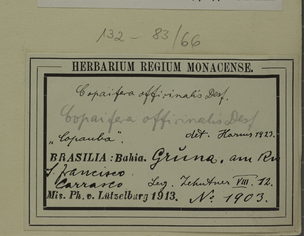 132 - 83/66
HERBARIUM REGIUM MONACENSE.
Copaifera officinalis Desf.
Copaifera officinalis Desf
"Copauba" det. Harms 1923.
BRASILIA: Bahia. Gruna, am Rio
S. francisco
Carrasco Leg. Zehntner VIII. 12.
Mis. Ph. v. Lützelburg 1913. No. 1903.